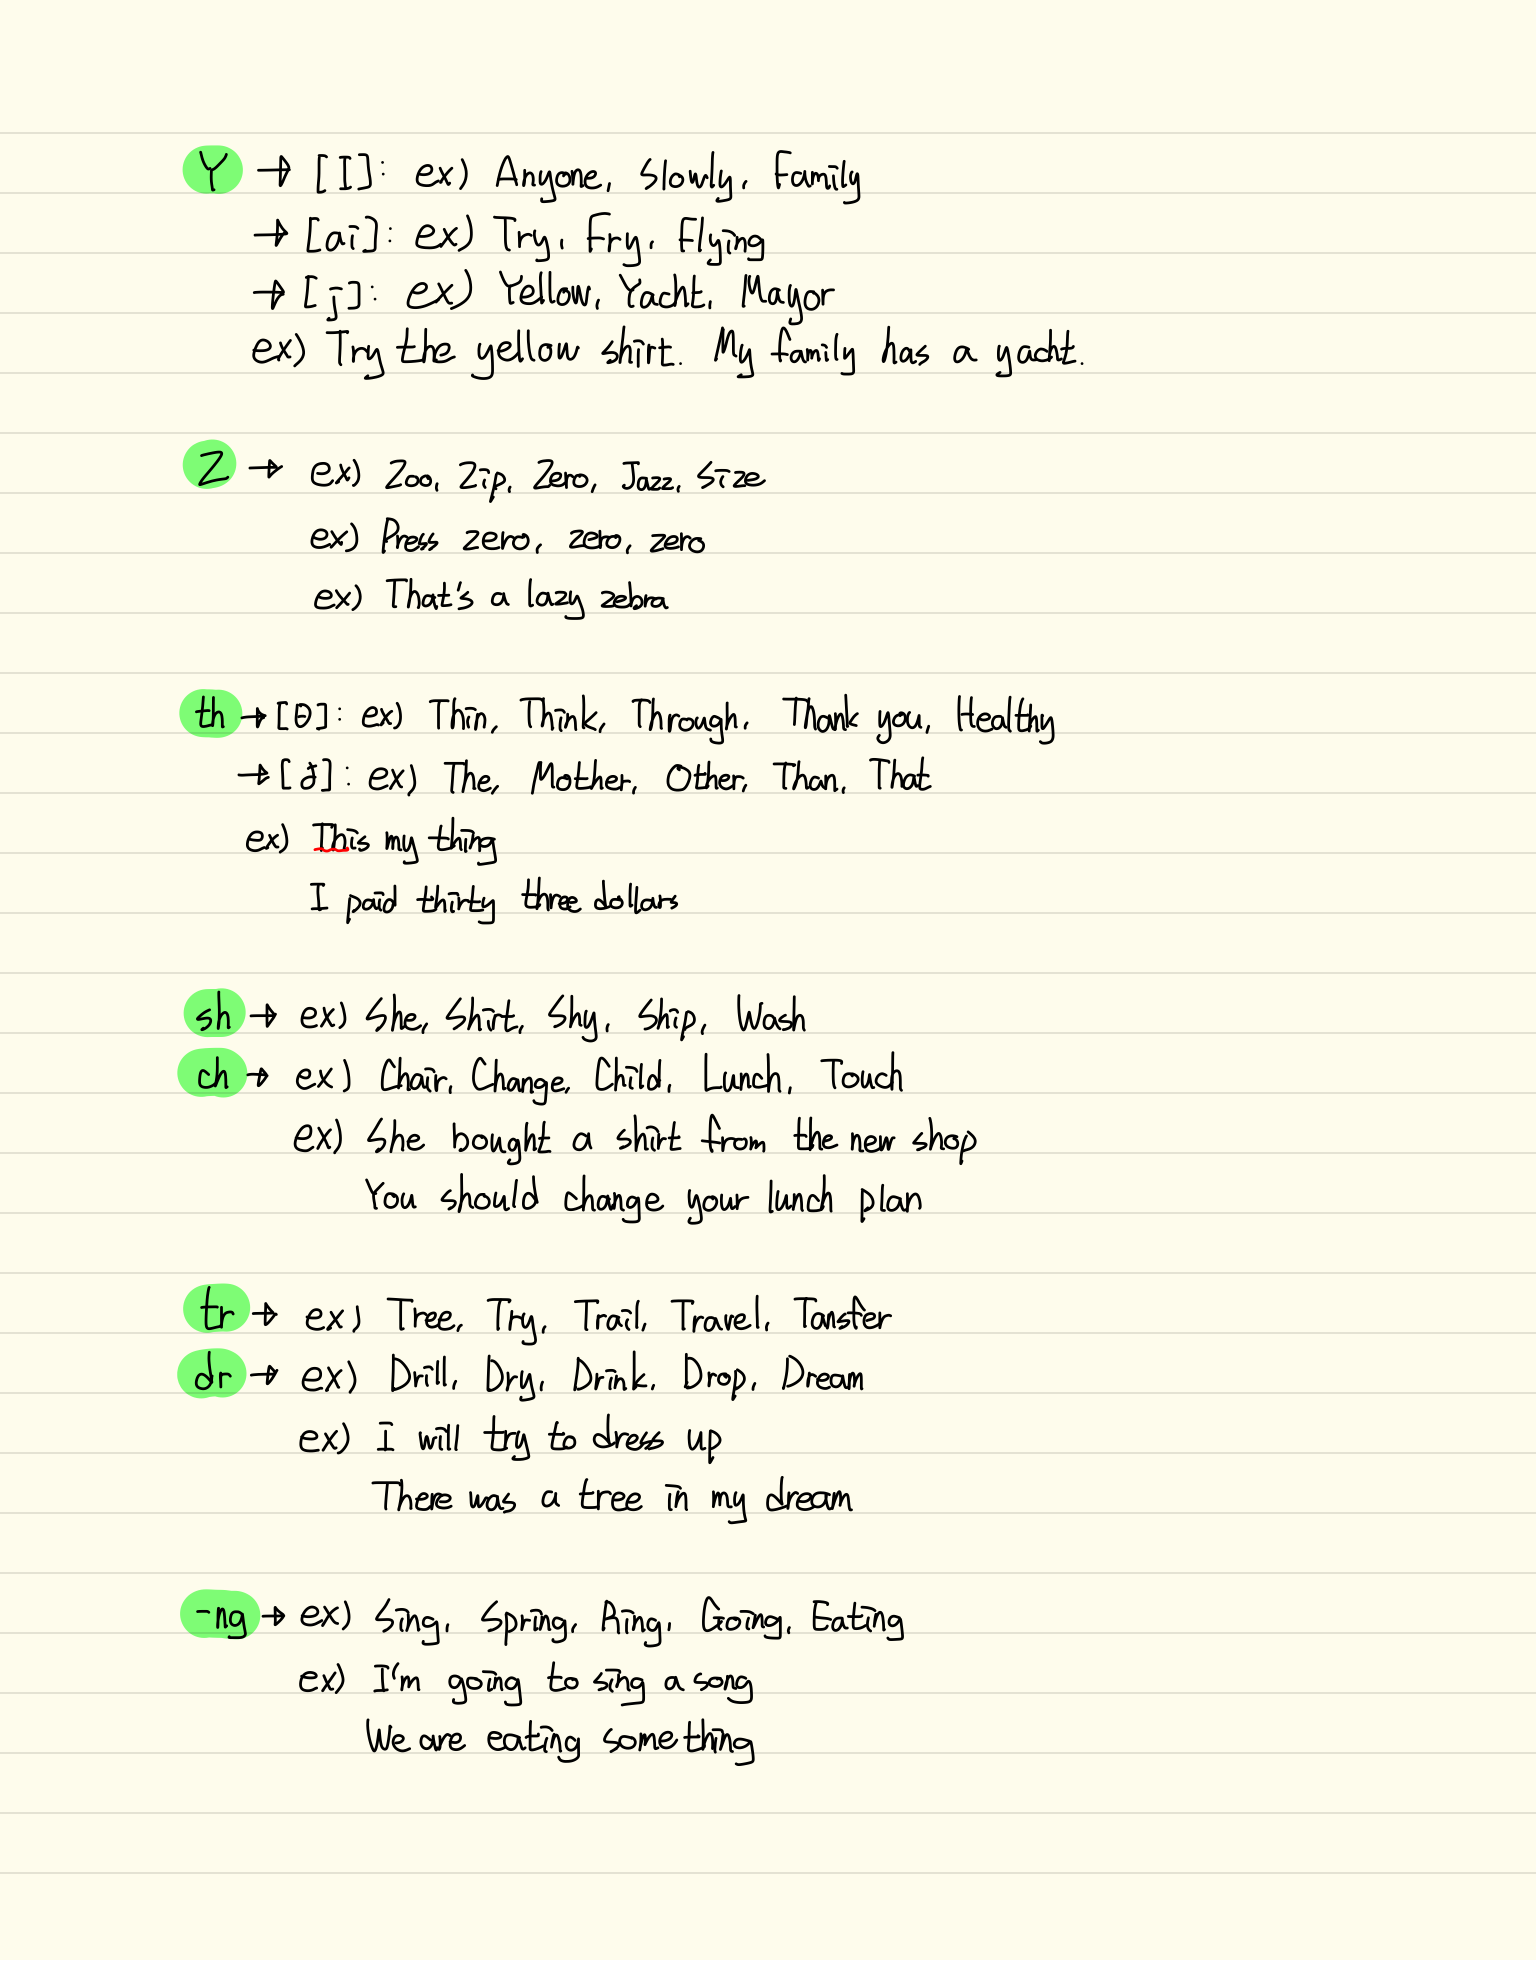 Y → [I]: ex) Anyone, Slowly, Family
→ [ai]: ex) Try, Fry, Flying
→ [j]: ex) Yellow, Yacht, Mayor
ex) Try the yellow shirt. My family has a yacht.
Z → ex) Zoo, Zip, Zero, Jazz, Size
ex) Press zero, zero, zero
ex) That's a lazy zebra
th → [θ]: ex) Thin, Think, Through, Thank you, Healthy
→ [ð]: ex) The, Mother, Other, Than, That
ex) This my thing
I paid thirty three dollars
sh → ex) She, Shirt, Shy, Ship, Wash
ch → ex) Chair, Change, Child, Lunch, Touch
ex) She bought a shirt from the new shop
You should change your lunch plan
tr → ex) Tree, Try, Trail, Travel, Tansfer
dr → ex) Drill, Dry, Drink, Drop, Dream
ex) I will try to dress up
There was a tree in my dream
-ng → ex) Sing, Spring, Ring, Going, Eating
ex) I'm going to sing a song
We are eating something